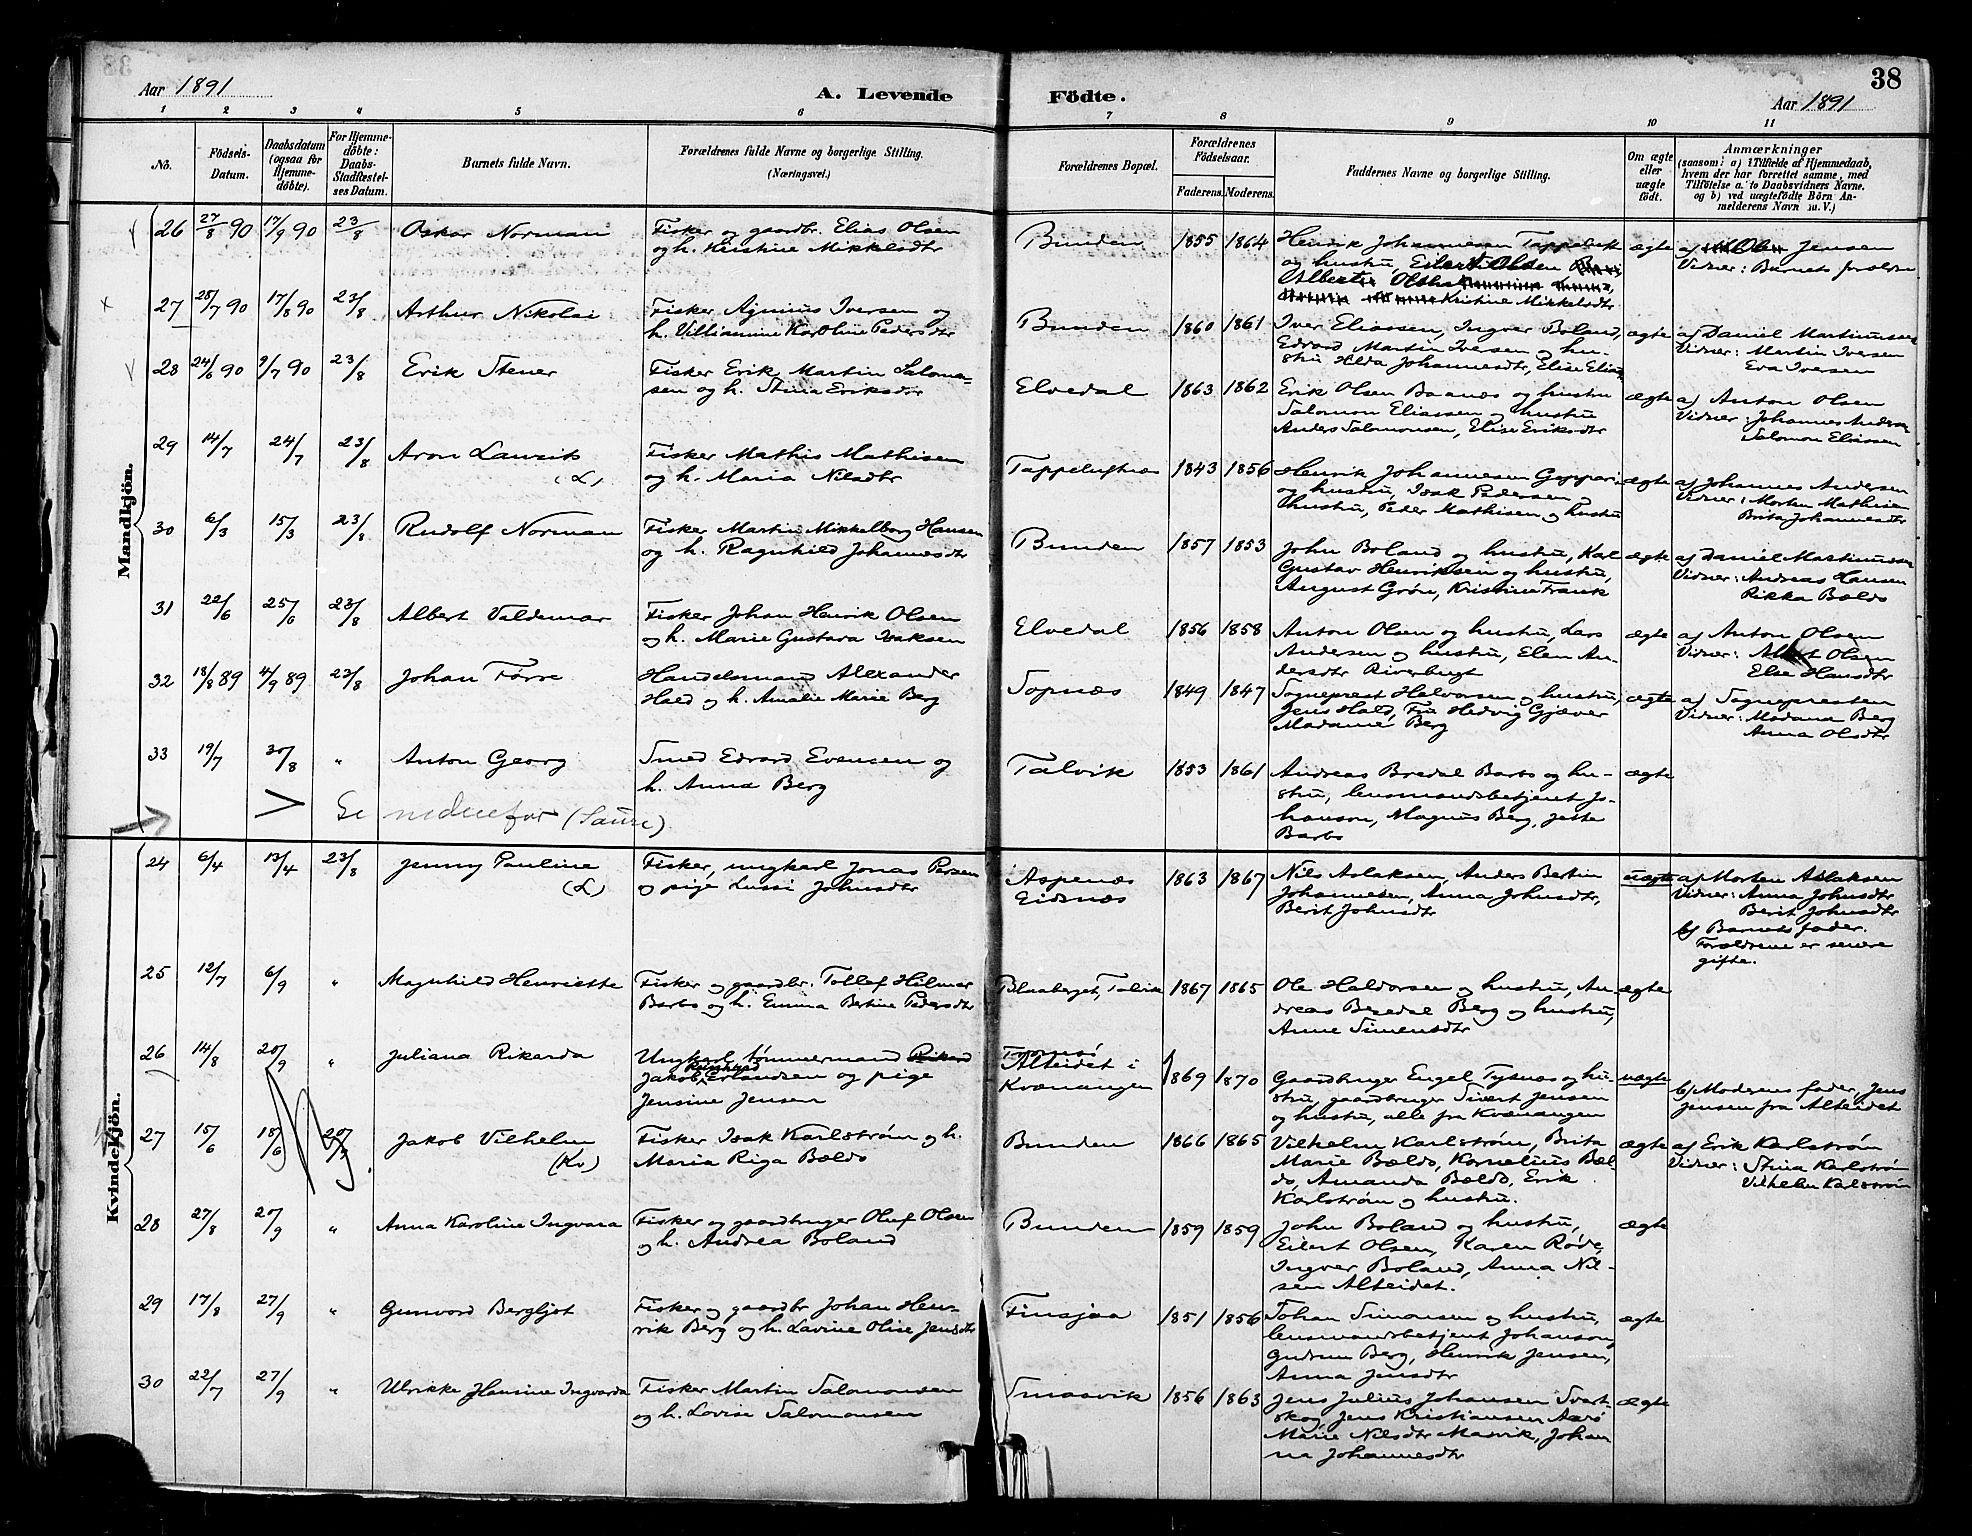 38
Aar 1891
A. Levende Födte.
Aar 1891
1 2 3 4 5 6 7 8 9 10 11
No.
Födsels-Datum.
Daabsdatum (ogsaa for Hjemme-döbte).
For Hjemme-döbte: Daabs-Stadfæstel-ses Datum.
Barnets fulde Navn.
Forældrenes fulde Navne og borgerlige Stilling.
(Næringsvei.)
Forældrenes Bopæl.
Forældrenes Födselsaar.
Faderens. Moderens.
Faddernes Navne og borgerlige Stilling.
Om ægte eller uægte födt.
Anmærkninger
(saasom: a) i Tilfælde af Hjemmedaab,
hvem der har forrettet samme, med
Tilföielse af to Daabsvidners Navne.
og b) ved uægtefödte Börn An-
melderens Navn m. V.)
Mandkjön.
26 27/8 90 17/9 90 23/8 Oskar Norman
Fisker og gaardbr. Elias Olsen
og h. Kristine Mikkelsdtr
Bunden 1855 1864
Henrik Johannesen Tappeluft
og hustru, Eilert Olsen
Kristine Mikkelsdtr.
ægte
a) Jensen
Vidner: Barnets forældre
27 28/7 90 17/8 90 23/8 Arthur Nikolai
Fisker Agnius Iversen og
h. Villiamine Karoline Pedersdtr
Bunden 1860 1861
Iver Eliassen, Ingver Boland,
Edvard Martin Iversen og hu-
stru Hilda Johannesdtr, Elise Elias
ægte
a) Daniel Martinussen
Vidner: Martin Iversen
Eva Iversen
28 24/6 90 9/7 90 23/8 Erik Stener
Fisker Erik Martin Salomo-
sen og h. Stina Eriksdtr
Elvedal 1863 1862
Erik Olsen Baanæs og hustru
Salomon Eliassen og hustru
Anders Salomonsen, Elise Eriksdtr
ægte
a) Anton Olsen
Vidner: Johannes Andersen
Salomon Eliassen
29 14/7 24/7 23/8 Aron Lausik
(L)
Fisker Mathis Mathisen
og h. Maria Nilsdtr
Tappeluftnæs 1843 1856
Henrik Johannesen
og hustru, Isak Pedersen og
hustru, Peder Mathisen og hustru
ægte
a) Johannes Andersen
Vidner: Morten Mathisen
Brita Johannesdtr
30 6/3 15/3 23/8 Rudolf Norman
Fisker Martin Mikkelborg Hansen
og h. Ragnhild Johannesdtr
Bunden 1857 1853
John Boland og hustru, Karl
Gustav Henriksen og hustru,
August Grön, Kristine Frank
ægte
a) Daniel Martinussen
Vidner: Andreas Hansen
Rikka Bælds
31 22/6 25/6 23/8 Albert Valdemar
Fisker Johan Henrik Olsen
og h. Marie Gustava Isaksen
Elvedal 1856 1858
Anton Olsen og hustru, Lars
Andersen og hustru, Elen An-
dersdtr Riverbugt
ægte
a) Anton Olsen
Vidner: Albert Olsen
Else Hansdtr
32 18/8 89 4/9 89 23/8 Johan Tørre
Handelsmand Alexander
Hald og h. Amalie Marie Berg
Sopnæs 1849 1847
Sogneprest Halvorsen og hustru,
Jens Hald, Fru Hedvig Gjæver
Madame Berg
ægte
a) Sognepresten
Vidner: Madame Berg
Anna Olsdtr
33 19/7 30/8 " Anton Georg
Smed Edvard Evensen og
h. Anna Berg
Talvik 1853 1861
Andreas Bredal Barbo og hu-
stru, lensmandsbetjent Jo-
hanson, Magnus Berg, Jetta
Barbo
ægte
> Se nedenfor (Saure)
Kvindekjön.
24 6/4 13/4 23/8 Jenny Pauline
(L)
Fisker, ungkarl Jonas Persen
og pige Lussi Johnsdtr
Aspenæs
Eidsnæs
1863 1867
Nils Aslaksen, Anders Bertin
Johannesen, Anna Johnsdtr,
Berit Johnsdtr
uægte
a) Morten Aslaksen
Vidner: Anna Johnsdtr
Berit Johnsdtr
b) Barnets fader.
Forældrene er senere
gifte.
25 12/7 6/9 " Magnhild Henriette
Fisker og gaardbr. Tollef Hilmar
Barbo og h. Emma Bertine Pedersdtr
Blaaberget, Talvik 1867 1865
Ole Haldorsen og hustru, An-
dreas Bredal Berg og hustru,
Anne Simensdtr
ægte
26 14/8 20/9 " Juliana Rikarda
Ungkarl, tømmermand Rikard
Jakob Erlandsen og pige
Jensine Jensen
Alteidet i
Kvænangen
1869 1870
Gaardbruger Engel Tysnæs og hu-
stru, gaardbruger Sivert Jensen
og hustru, alle fra Kvænangen
uægte
b) Moderens fader, Jens
Jensen fra Alteidet
27 15/6 18/6 20/9 Jakob Vilhelm
(Kv)
Fisker Isak Karlstrøm og h.
Maria Riga Bælds
Bunden 1866 1865
Vilhelm Karlstrøm, Brita
Marie Bælds, Kornelius Bæl-
ds, Amanda Bælds, Erik
Karlstrøm og hustru.
ægte
a) Erik Karlstrøm
Vidner: Stina Karlstrøm
Vilhelm Karlstrøm
28 27/8 20/9 " Anna Karoline Ingvara
Fisker og gaardbruger Oluf Olsen
og h. Andrea Boland
Bunden 1859 1859
John Boland og hustru,
Eilert Olsen, Karen Røde,
Ingver Boland, Anna Nil-
sen Alteidet.
ægte
29 17/8 27/9 " Gunvord Bergljot
Fisker og gaardbr Johan Hen-
rik Berg og h. Lavine Olise Jensdtr
Finsjaa 1851 1856
Johan Simonsen og hustru,
lensmandsbetjent Johanson,
Gudrun Berg, Henrik Jensen,
Anna Jensdtr
ægte
30 22/7 27/9 " Ulrikke Hansine Ingvarda
Fisker Martin Salomonsen
og h. Lovise Salomonsen
Smaavik 1856 1863
Jens Julius Johansen Svart-
skog, Jens Kristiansen Aarø
Marie Nilsdtr Masvik, Johan
na Johannesdtr
ægte